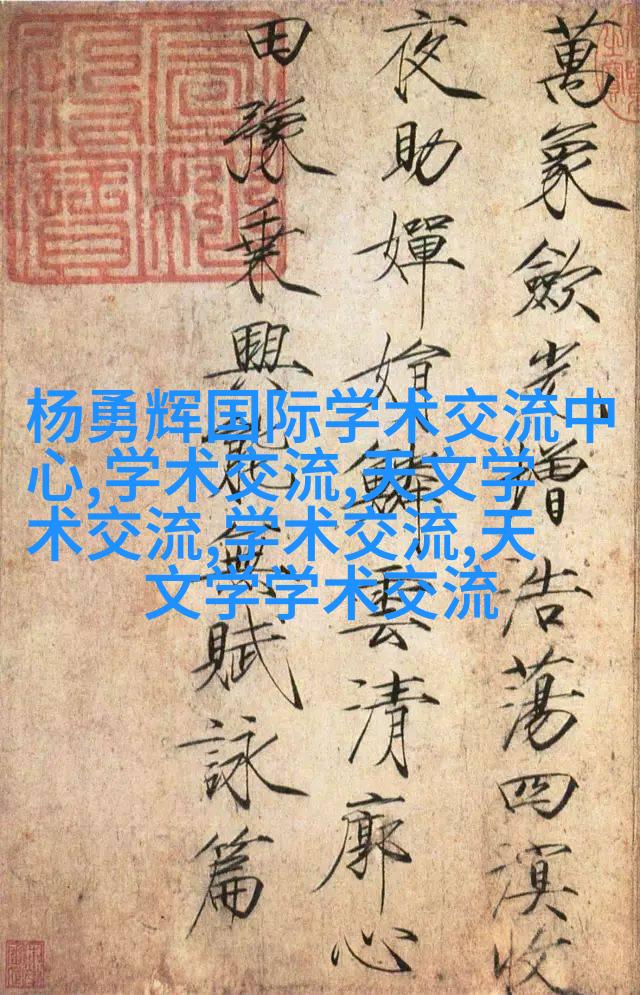 萬象歛光增浩蕩四溟收
夜助嬋娟鱗雲清廓心
田豫乘興能無賦詠篇
杨勇辉国际学术交流中
心,学术交流,天文学
术交流,学术交流,天
文学学术交流